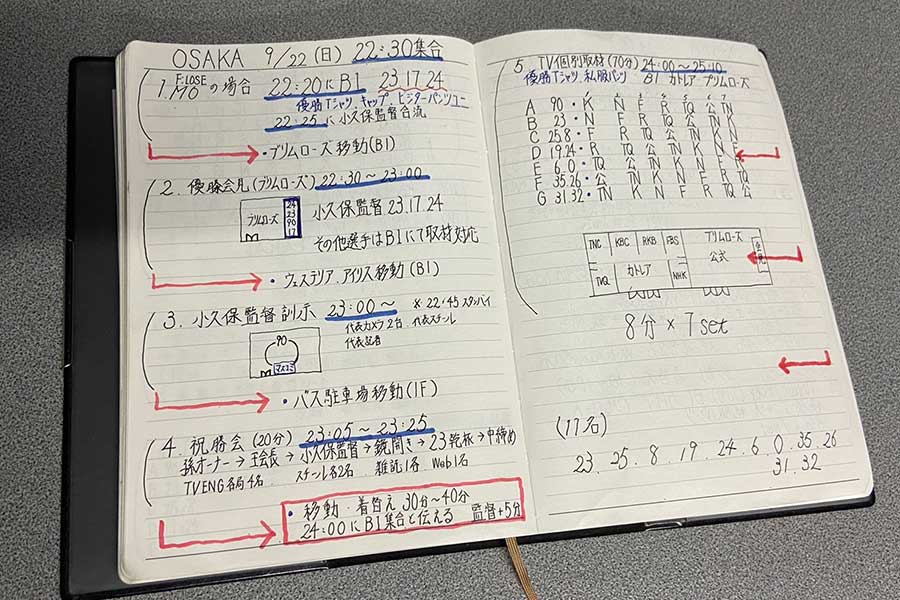 OSAKA 9/22(日) 22:30集合
1. F.LOSE MOの場合 22:20にB1 23.17.24
優勝Tシャツ、キャップ、ビジターパンツユニ
22:25に小久保監督合流
・プリムローズ移動(B1)
2. 優勝会見(プリムローズ) 22:30〜23:00
プリムローズ
24
23
90
17
小久保監督 23.17.24
その他選手はB1にて取材対応
・ウェステリア、アイリス移動(B1)
3. 小久保監督訓示 23:00〜 ※22:45スタンバイ
代表カメラ2台 代表スチール
代表記者
90
マスコミ
・バス駐車場移動(1F)
4. 祝勝会(20分) 23:05〜23:25
孫オーナー→王会長→小久保監督→鏡開き→23乾杯→中締め
TVENG各局4名 スチール各2名 雑誌1名 Web1名
・移動・着替え 30分〜40分
24:00にB1集合と伝える 監督+5分
5. TV個別取材(70分) 24:00〜25:10
優勝Tシャツ、私服パンツ B1 カトレア プリムローズ
A 90・K N F R TQ 公 TN
B 23・N F R TQ 公 TN K
C 25.8・F R TQ 公 TN K N
D 19.24・R TQ 公 TN K N F
E 6.0・TQ 公 TN K N F R
F 35.26・公 TN K N F R TQ
G 31.32・TN K N F R TQ 公
TNC KBC RKB FBS プリムローズ
公式
TVQ カトレア NHK
8分×7set
(11名)
23.25.8.19.24.6.0.35.26
31.32